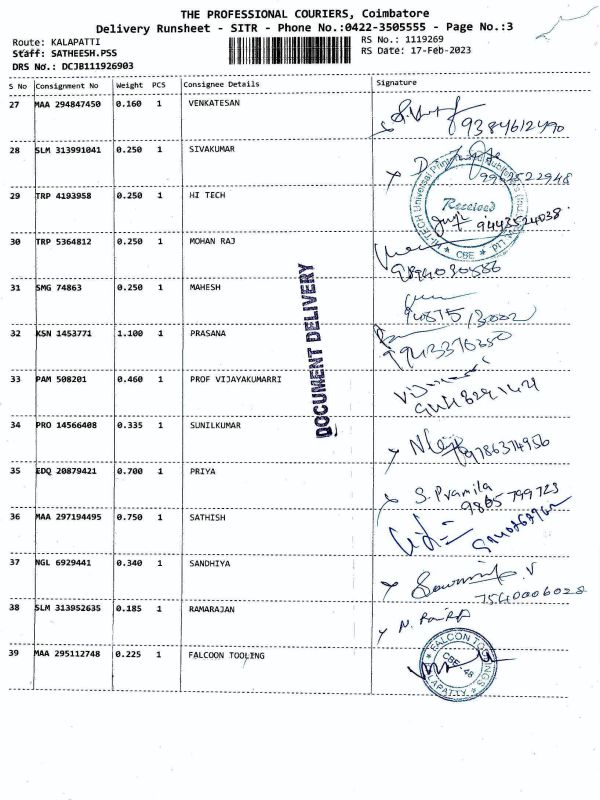 THE PROFESSIONAL COURIERS, Coimbatore
Delivery Runsheet - SITR - Phone No.:0422-3505555 - Page No.:3
Route: KALAPATTI
Staff: SATHEESH.PSS
DRS No.: DCJB111926903
RS No.: 1119269
RS Date: 17-Feb-2023
S No Consignment No Weight PCS Consignee Details Signature
27 MAA 294847450 0.160 1 VENKATESAN
9384612490
28 SLM 313991041 0.250 1 SIVAKUMAR
29 TRP 4193958 0.250 1 HI TECH
Received
9443524038
CBE
30 TRP 5364812 0.250 1 MOHAN RAJ
31 SMG 74863 0.250 1 MAHESH
32 KSN 1453771 1.100 1 PRASANA
9943376550
33 PAM 508201 0.460 1 PROF VIJAYAKUMARRI
34 PRO 14566408 0.335 1 SUNILKUMAR
9786374956
35 EDQ 20879421 0.700 1 PRIYA
S. Pramila
9865799723
36 MAA 297194495 0.750 1 SATHISH
37 NGL 6929441 0.340 1 SANDHIYA
7540006028
38 SLM 313952635 0.185 1 RAMARAJAN
39 MAA 295112748 0.225 1 FALCOON TOOLING
FALCON TOOLINGS
CBE-48
DOCUMENT DELIVERY